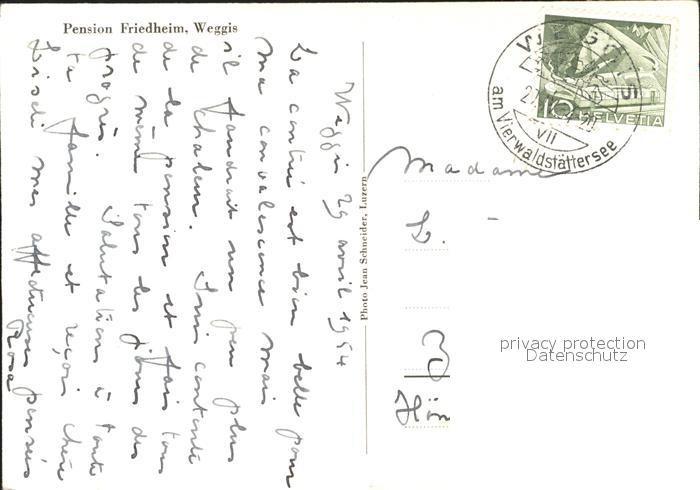 Pension Friedheim, Weggis
Weggis 29 avril 1954
La contrée est bien belle pour
ma convalescence mais
il faudrait un peu plus
de chaleur. Suis contente
de la pension et fais tous
de même tous les jours des
progrès. Salutations à toute
ta famille et reçois chère
Liseli mes affectueuses pensées
Rosa
Photo Jean Schneider, Luzern
10 HELVETIA
WEGGIS
VII
am Vierwaldstättersee
Madame
L.
privacy protection
Datenschutz